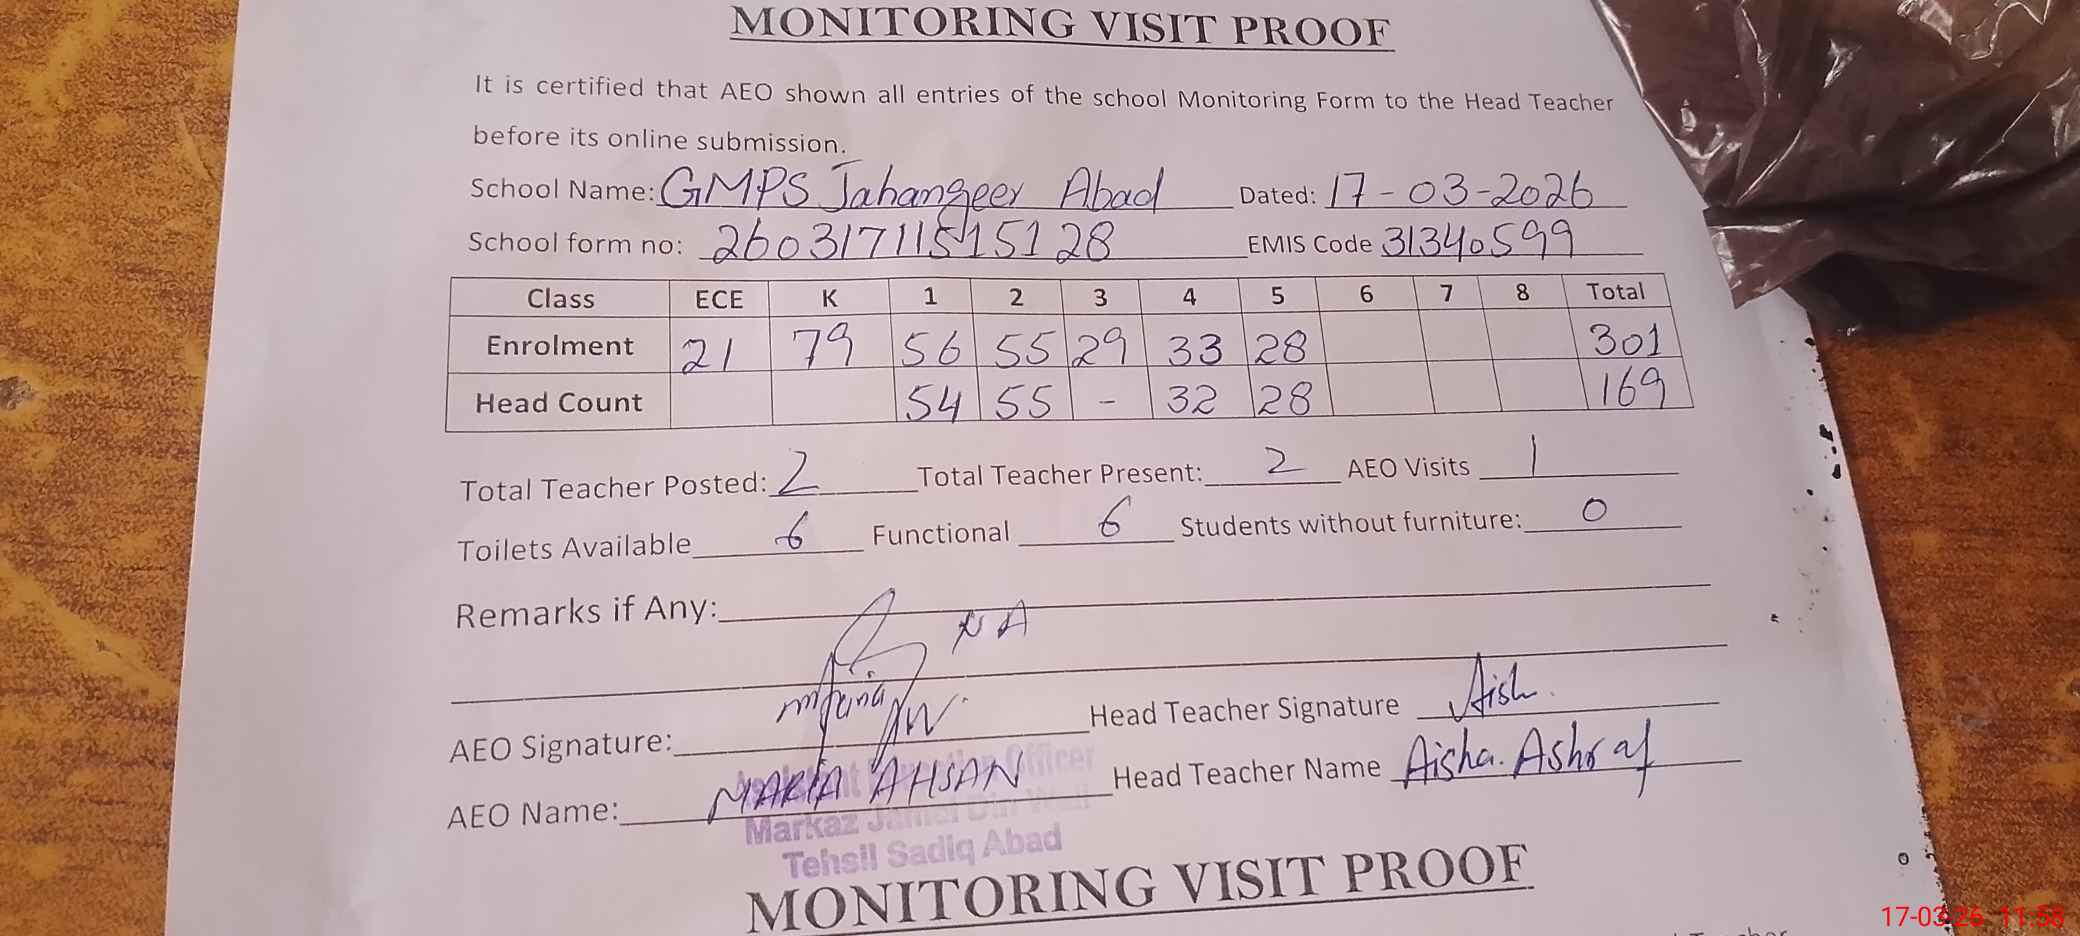 MONITORING VISIT PROOF
It is certified that AEO shown all entries of the school Monitoring Form to the Head Teacher
before its online submission.
School Name: GMPS Jahangeer Abad Dated: 17-03-2026
School form no: 26031711515128 EMIS Code 31340599
Class ECE K 1 2 3 4 5 6 7 8 Total
Enrolment 21 79 56 55 29 33 28 301
Head Count 54 55 - 32 28 169
Total Teacher Posted: 2 Total Teacher Present: 2 AEO Visits 1
Toilets Available 6 Functional 6 Students without furniture: 0
Remarks if Any:
NA
AEO Signature: Head Teacher Signature Aish.
Assistant Education Officer
AEO Name: MARIA AHSAN Head Teacher Name Aisha. Ashraf
Markaz Jamal Din Wali
Tehsil Sadiq Abad
MONITORING VISIT PROOF
17-03-26 11:58